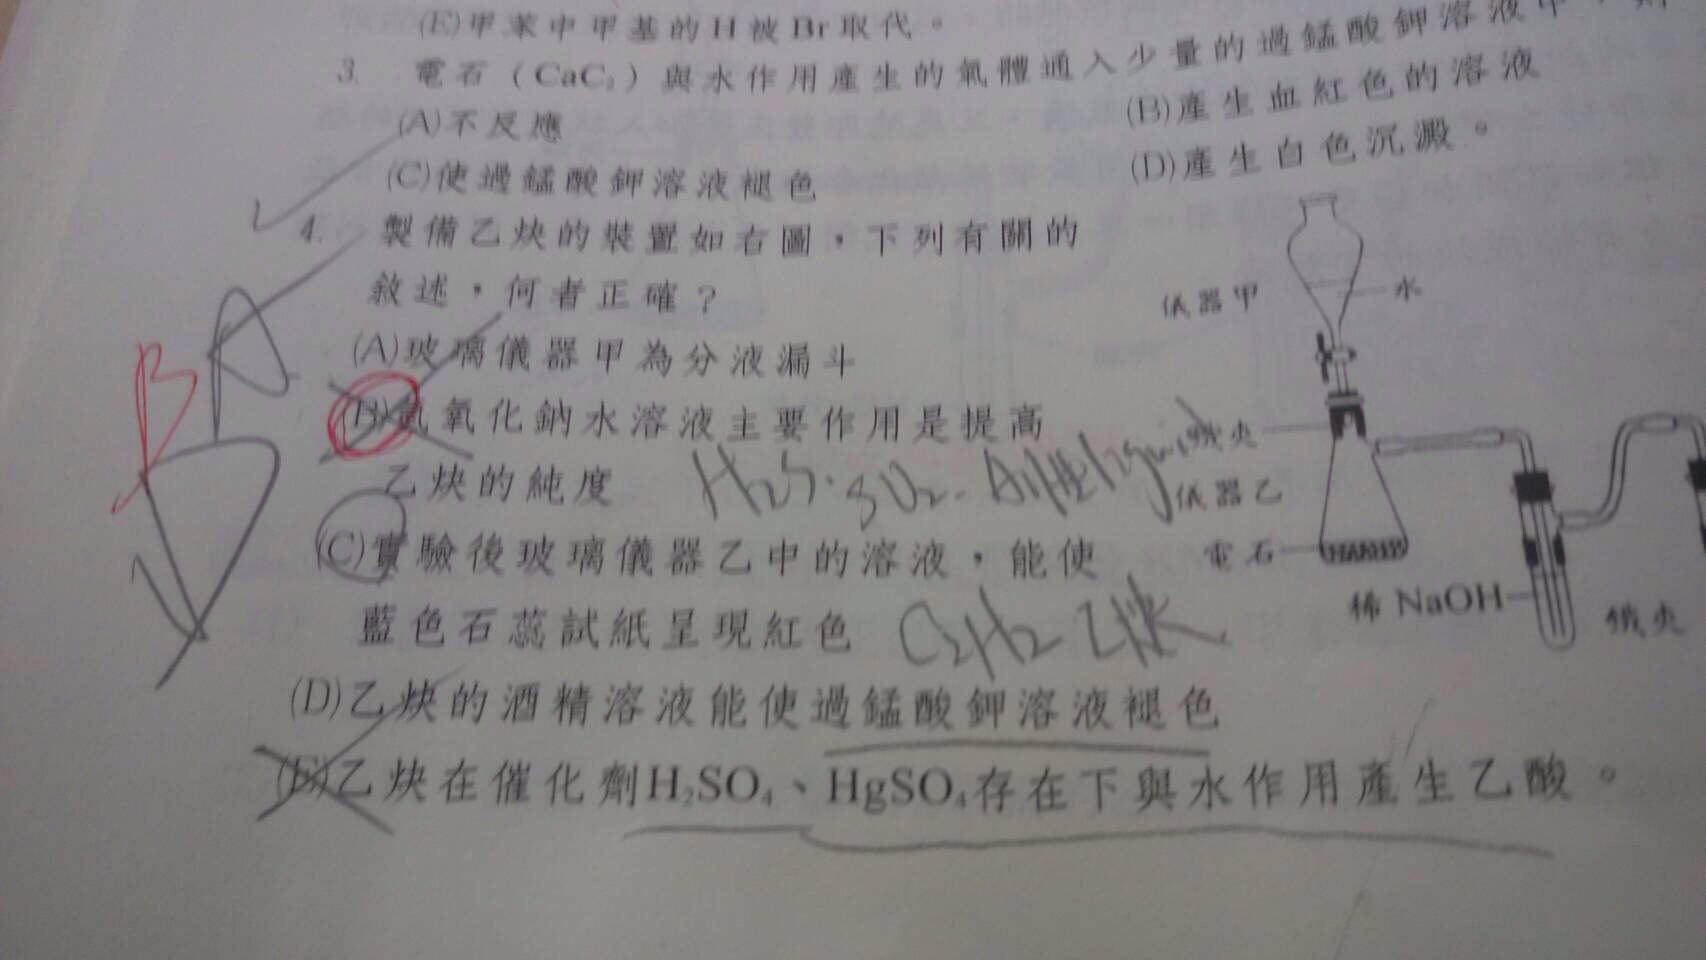 (E)甲苯中甲基的H被Br取代。
3. 電石（CaC₂）與水作用產生的氣體通入少量的過錳酸鉀溶液中，則
(A)不反應 (B)產生血紅色的溶液
(C)使過錳酸鉀溶液褪色 (D)產生白色沉澱。
4. 製備乙炔的裝置如右圖，下列有關的
敘述，何者正確？
(A)玻璃儀器甲為分液漏斗
(B)氫氧化鈉水溶液主要作用是提高
乙炔的純度
(C)實驗後玻璃儀器乙中的溶液，能使
藍色石蕊試紙呈現紅色
(D)乙炔的酒精溶液能使過錳酸鉀溶液褪色
(E)乙炔在催化劑H₂SO₄、HgSO₄存在下與水作用產生乙酸。
儀器甲
水
鐵夾
儀器乙
電石
稀NaOH
鐵夾
B
H₂S.SO₂.
C₂H₂ 乙炔